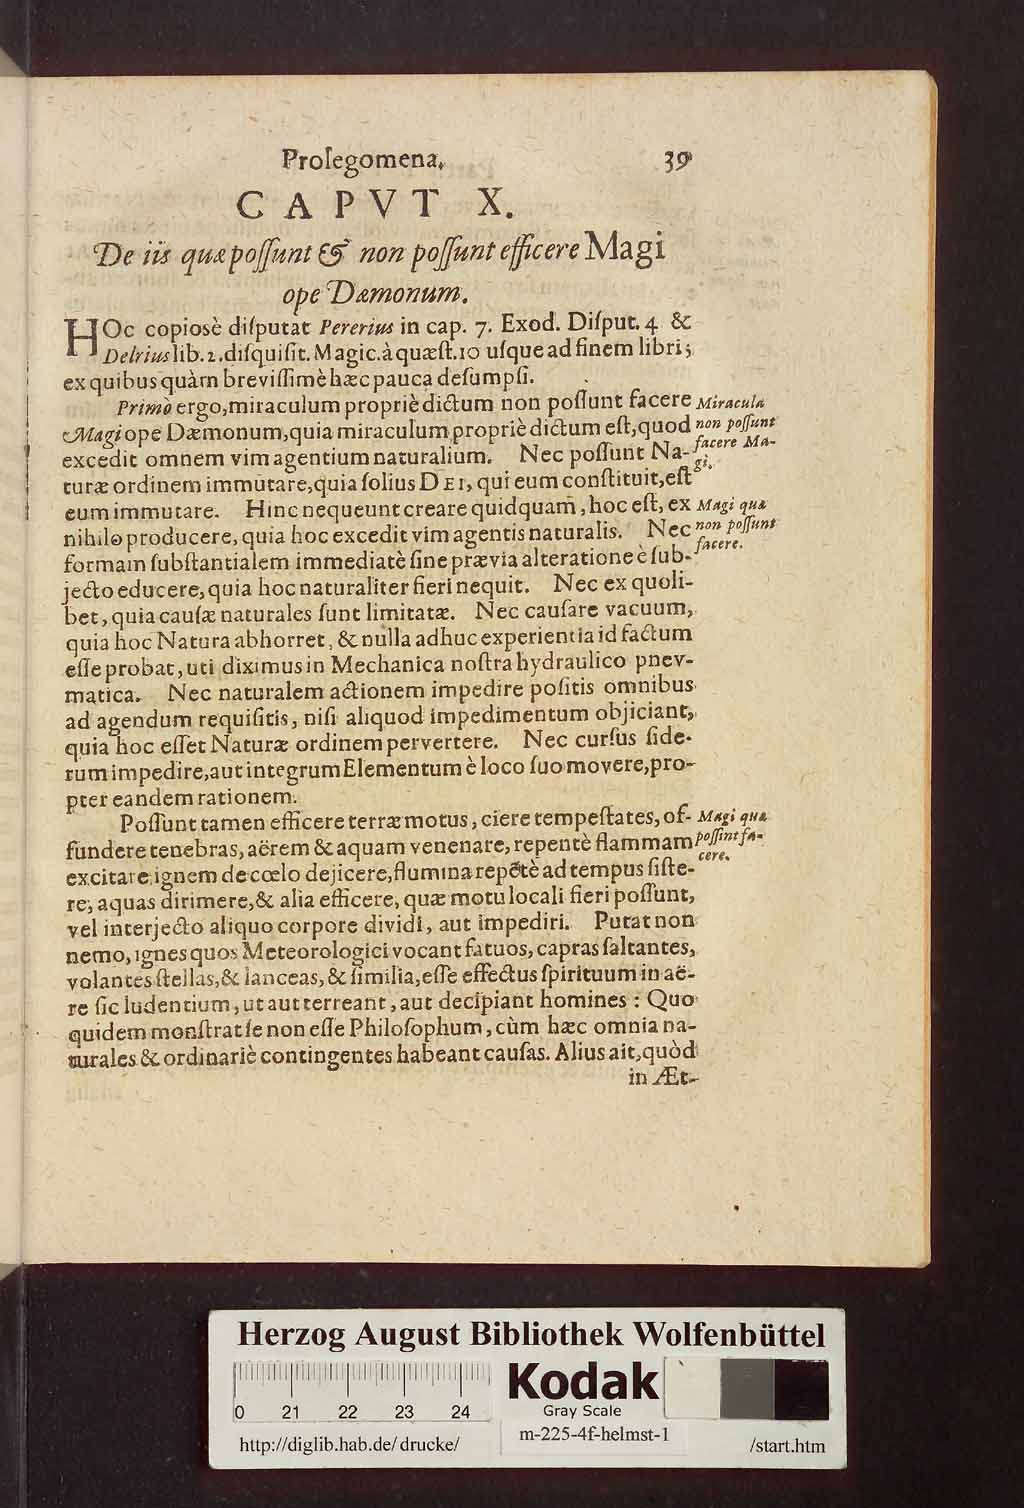 Prolegomena. 39
CAPVT X.
De iis quæ poſſunt & non poſſunt efficere Magi
ope Dæmonum.
HOc copiosè diſputat Pererius in cap. 7. Exod. Diſput. 4 &
Delrius lib. 2. diſquiſit. Magic. à quæſt. 10 uſque ad finem libri;
ex quibus quàm breviſſimè hæc pauca deſumpſi.
Primò ergo, miraculum propriè dictum non poſſunt facere
Magi ope Dæmonum, quia miraculum propriè dictum eſt, quod
excedit omnem vim agentium naturalium. Nec poſſunt Na-
turæ ordinem immutare, quia ſolius DEI, qui eum conſtituit, eſt
eum immutare. Hinc nequeunt creare quidquam, hoc eſt, ex
nihilo producere, quia hoc excedit vim agentis naturalis. Nec
formam ſubſtantialem immediatè ſine prævia alteratione è ſub-
jecto educere, quia hoc naturaliter fieri nequit. Nec ex quoli-
bet, quia cauſæ naturales ſunt limitatæ. Nec cauſare vacuum,
quia hoc Natura abhorret, & nulla adhuc experientia id factum
eſſe probat, uti diximus in Mechanica noſtra hydraulico pnev-
matica. Nec naturalem actionem impedire poſitis omnibus
ad agendum requiſitis, niſi aliquod impedimentum objiciant,
quia hoc eſſet Naturæ ordinem pervertere. Nec curſus ſide-
rum impedire, aut integrum Elementum è loco ſuo movere, pro-
pter eandem rationem.
Poſſunt tamen efficere terræ motus, ciere tempeſtates, of-
fundere tenebras, aërem & aquam venenare, repentè flammam
excitare, ignem de cœlo dejicere, flumina repētè ad tempus ſiſte-
re, aquas dirimere, & alia efficere, quæ motu locali fieri poſſunt,
vel interjecto aliquo corpore dividi, aut impediri. Putat non
nemo, ignes quos Meteorologici vocant fatuos, capras ſaltantes,
volantes ſtellas, & lanceas, & ſimilia, eſſe effectus ſpirituum in aë-
re ſic ludentium, ut aut terreant, aut decipiant homines: Quo
quidem monſtrat ſe non eſſe Philoſophum, cùm hæc omnia na-
turales & ordinariè contingentes habeant cauſas. Alius ait, quòd
in Æt-
Miracula
non poſſunt
facere Ma-
gi.
Magi quæ
non poſſunt
facere.
Magi quæ
poſſint fa-
cere.
Herzog August Bibliothek Wolfenbüttel
0 21 22 23 24
Kodak
Gray Scale
http://diglib.hab.de/drucke/ m-225-4f-helmst-1 /start.htm